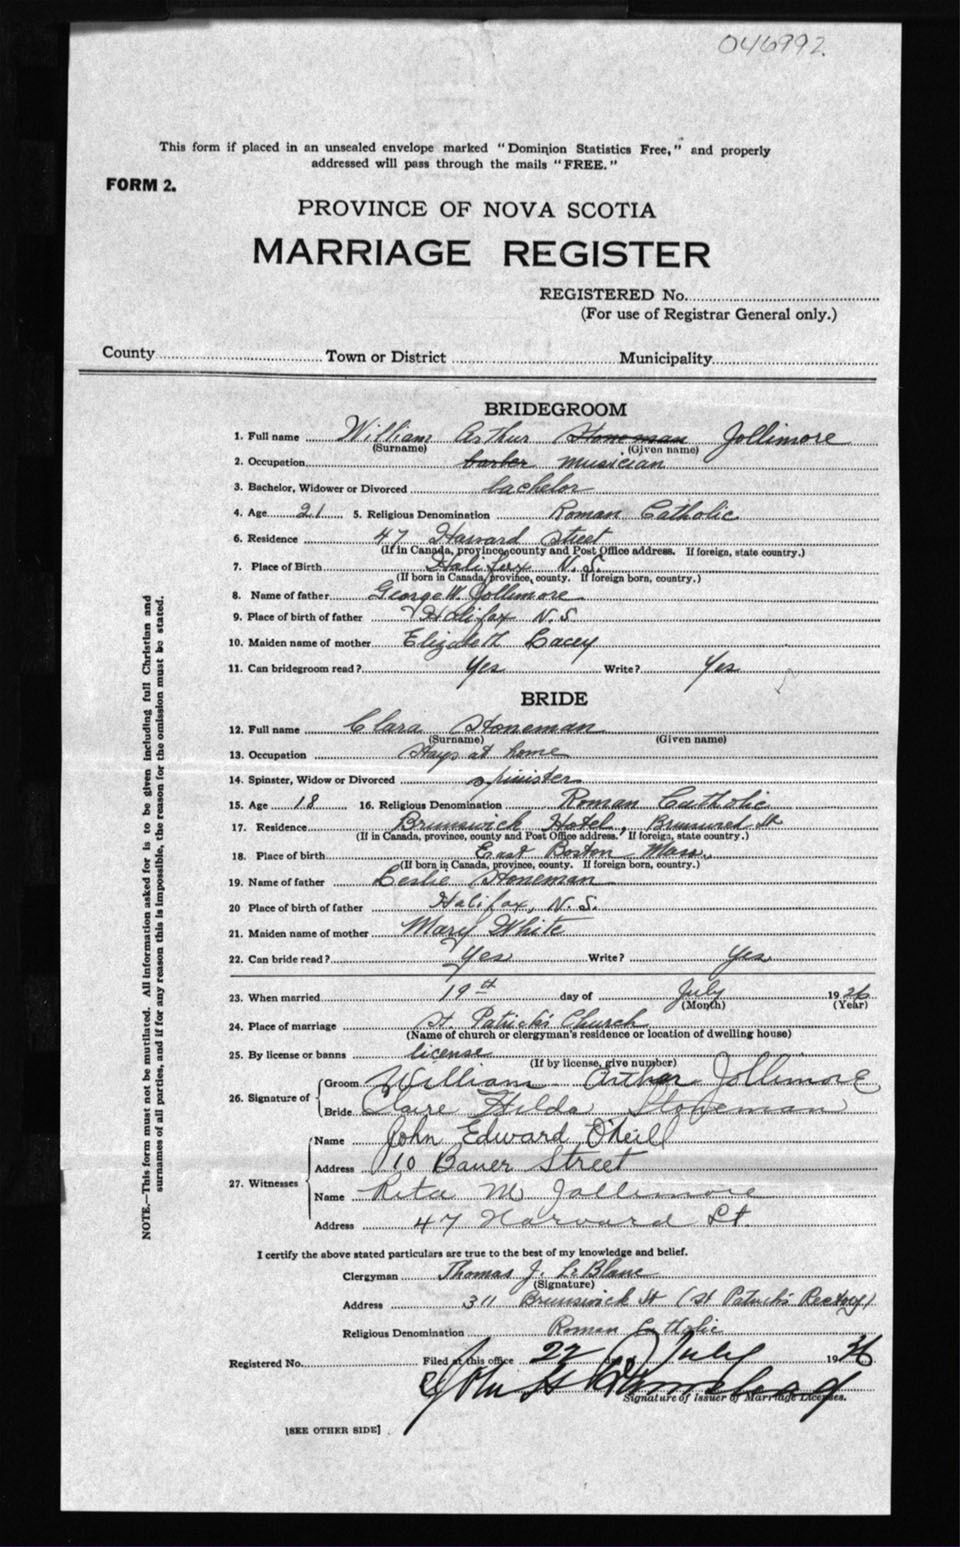 046992
This form if placed in an unsealed envelope marked "Dominion Statistics Free," and properly
addressed will pass through the mails "FREE."
FORM 2.
PROVINCE OF NOVA SCOTIA
MARRIAGE REGISTER
REGISTERED No.
(For use of Registrar General only.)
County Town or District Municipality
BRIDEGROOM
1. Full name William Arthur Stoneman Jollimore
(Surname) (Given name)
2. Occupation barber musician
3. Bachelor, Widower or Divorced bachelor
4. Age 21 5. Religious Denomination Roman Catholic
6. Residence 47 Harvard Street
(If in Canada, province, county and Post Office address. If foreign, state country.)
7. Place of Birth Halifax N.S.
(If born in Canada, province, county. If foreign born, country.)
8. Name of father George W. Jollimore
9. Place of birth of father Halifax N.S.
10. Maiden name of mother Elizabeth Lacey
11. Can bridegroom read? Yes Write? Yes
BRIDE
12. Full name Clara Stoneman
(Surname) (Given name)
13. Occupation Stays at home
14. Spinster, Widow or Divorced spinister
15. Age 18 16. Religious Denomination Roman Catholic
17. Residence Brunswick Hotel, St
(If in Canada, province, county and Post Office address. If foreign, state country.)
18. Place of birth East Boston Mass.
(If born in Canada, province, county. If foreign born, country.)
19. Name of father Leslie Stoneman
20 Place of birth of father Halifax, N.S.
21. Maiden name of mother Mary White
22. Can bride read? Yes Write? Yes
23. When married 19st day of July 1926
(Month) (Year)
24. Place of marriage St. Patrick's Church
(Name of church or clergyman's residence or location of dwelling house)
25. By license or banns license
(If by license, give number)
26. Signature of Groom William Arthur Jollimore
Bride Claire Hilda Stoneman
27. Witnesses Name John Edward O'Neill
Address 10 Bauer Street
Name Rita M Jollimore
Address 47 Harvard St.
I certify the above stated particulars are true to the best of my knowledge and belief.
Clergyman Thomas J. LeBlanc
(Signature)
Address 311 Brunswick St (St Patrick's Rectory)
Religious Denomination Roman Catholic
Registered No. Filed at this office 22 July 1926
John H
Signature of Issuer of Marriage Licenses.
[SEE OTHER SIDE]
NOTE.—This form must not be mutilated. All information asked for is to be given including full Christian and
surnames of all parties, and if for any reason this is impossible, the reason for the omission must be stated.